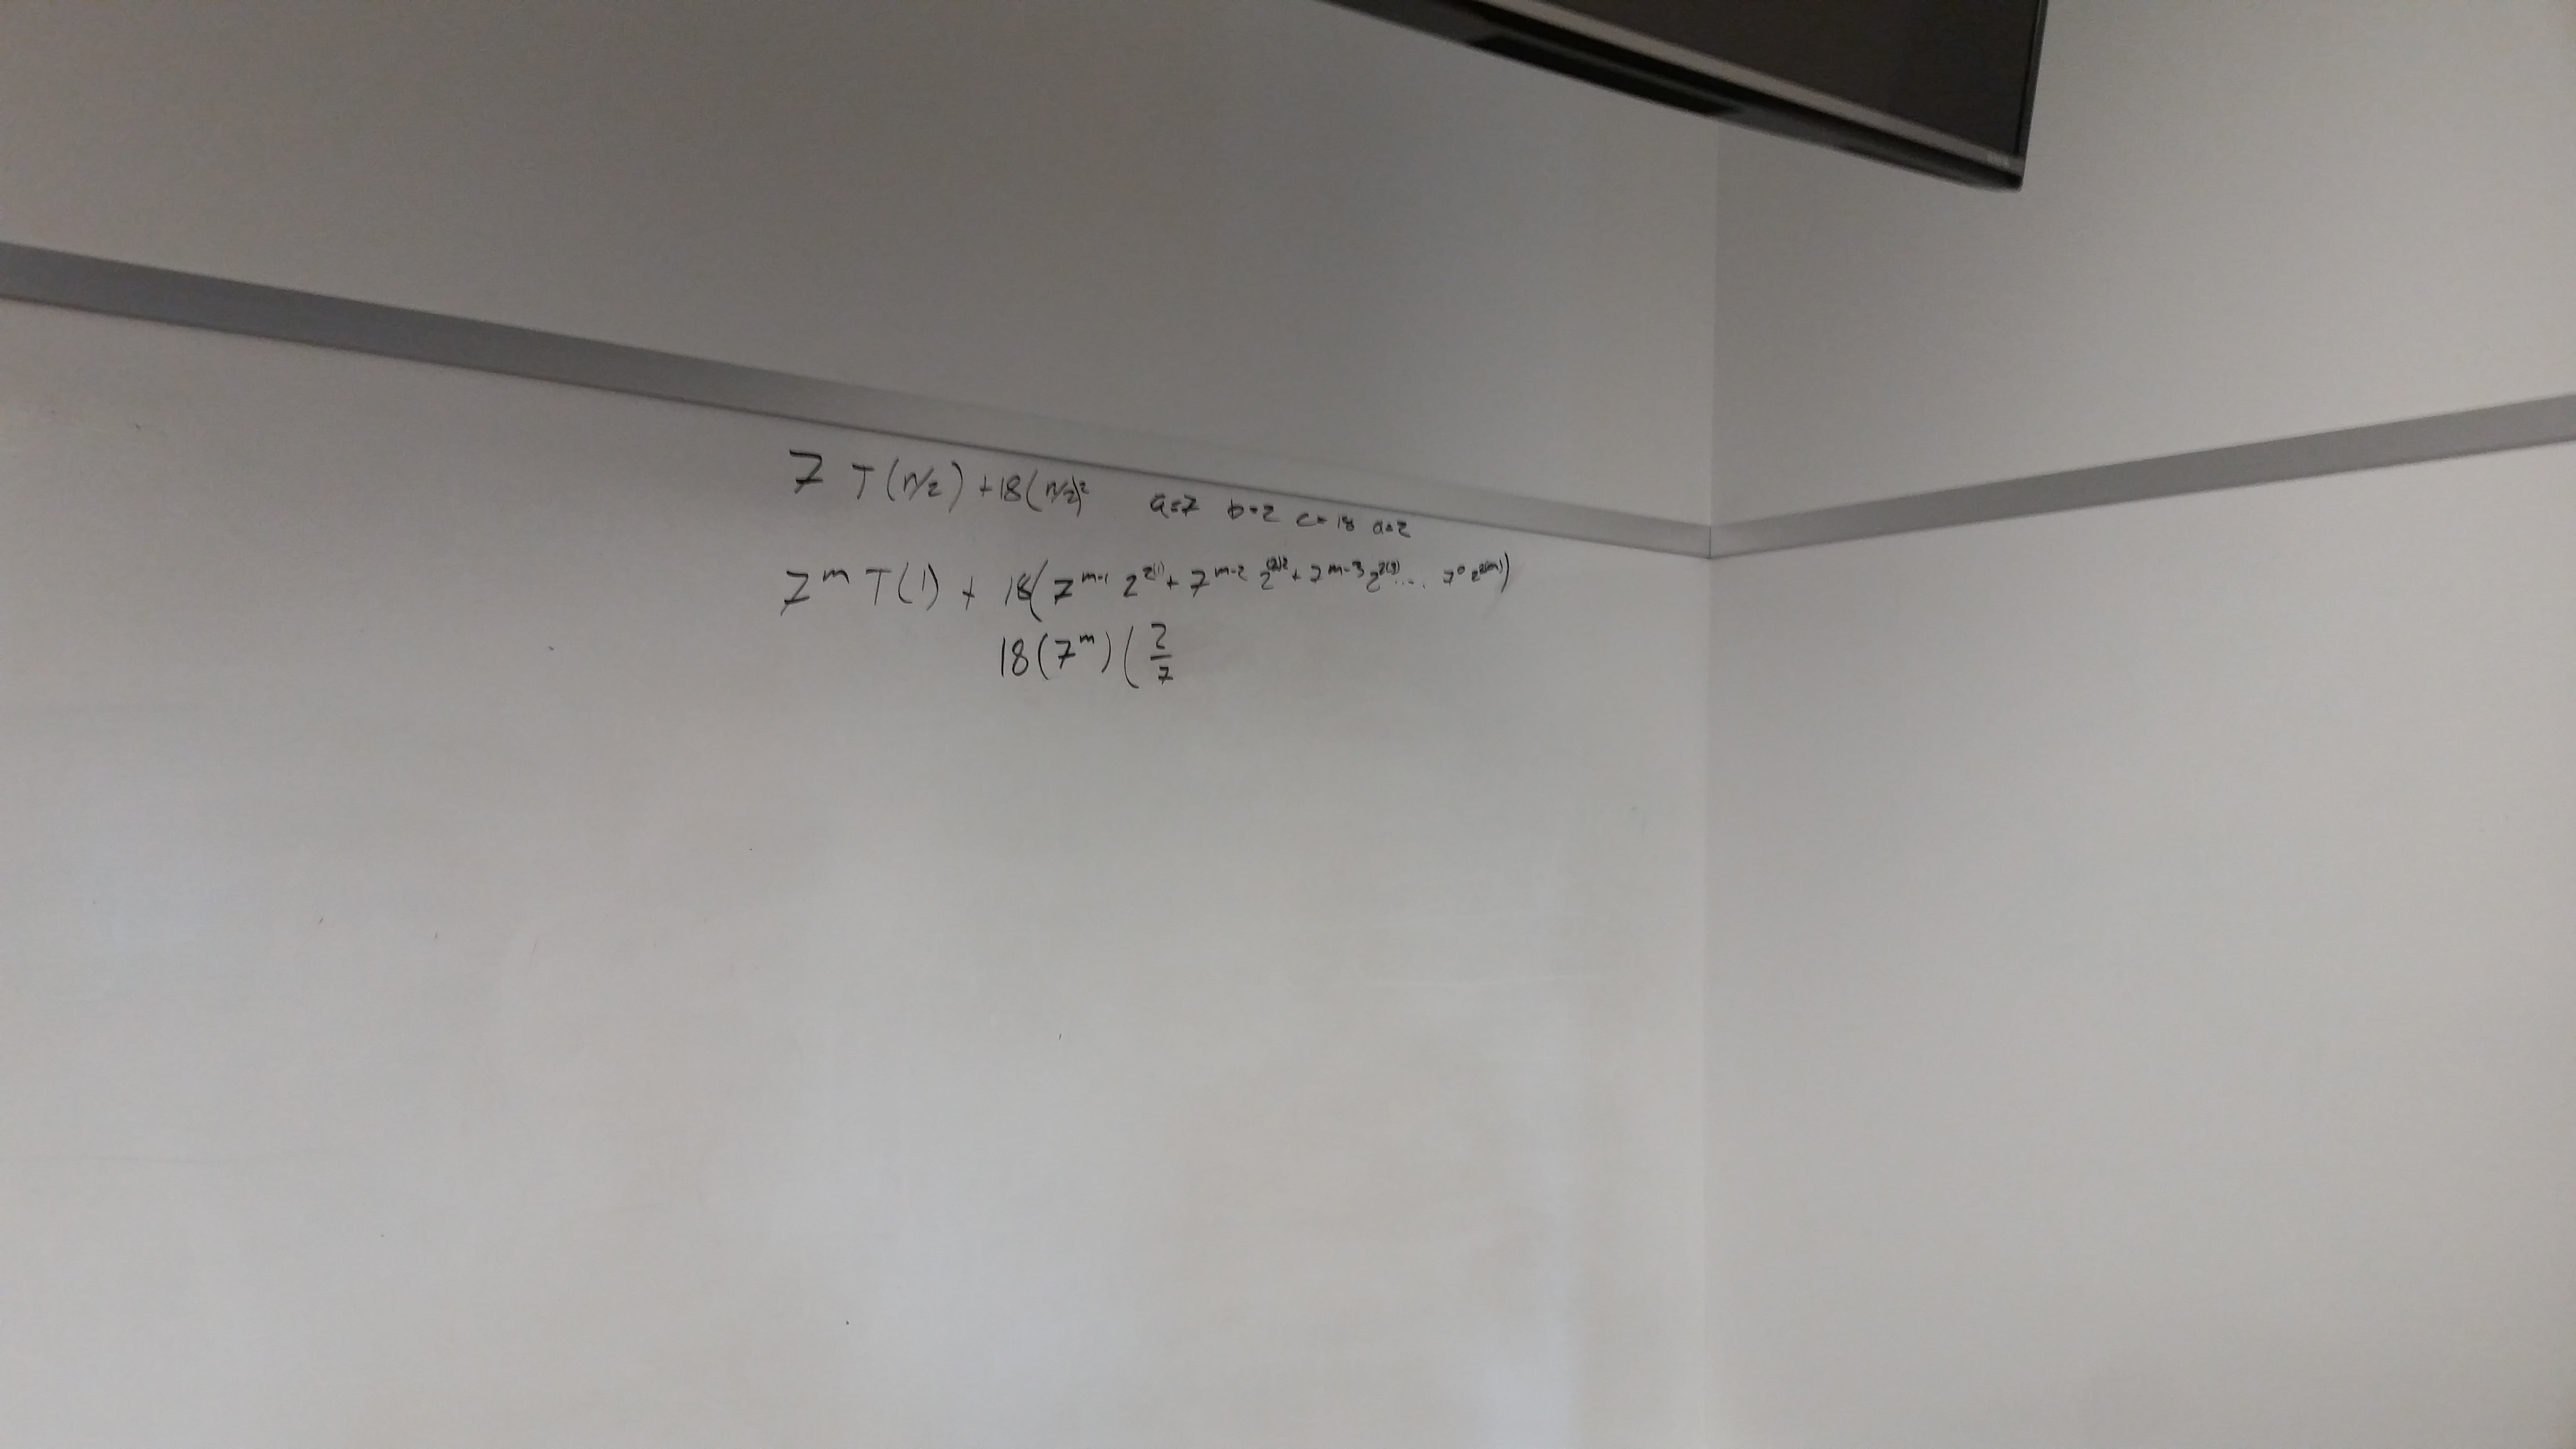 7 T(n/2) + 18(n/2)² a=7 b=2 c=18 a=2
7^m T(1) + 18(7^(m-1) 2^(2(1)) + 7^(m-2) 2^((2)2) + 7^(m-3) 2^(2(3)) .... 7^0 2^(2(m)))
18(7^m)(2/7